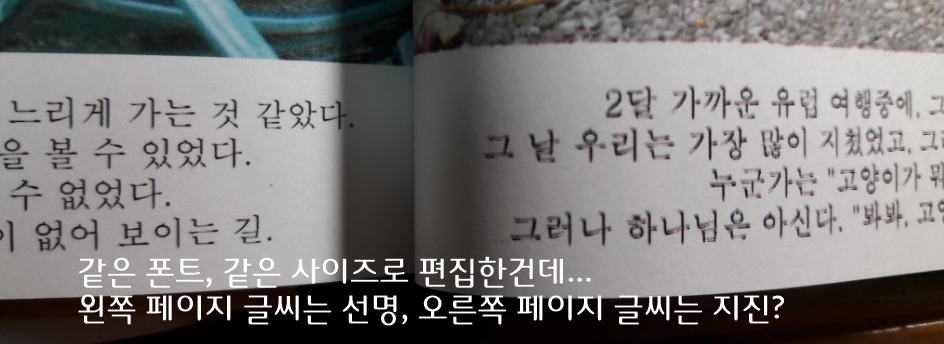 느리게 가는 것 같았다.
을 볼 수 있었다.
수 없었다.
이 없어 보이는 길.
2달 가까운 유럽 여행중에, 그
그 날 우리는 가장 많이 지쳤었고, 그
누군가는 "고양이가 뭐
그러나 하나님은 아신다. "봐봐, 고양
같은 폰트, 같은 사이즈로 편집한건데...
왼쪽 페이지 글씨는 선명, 오른쪽 페이지 글씨는 지진?